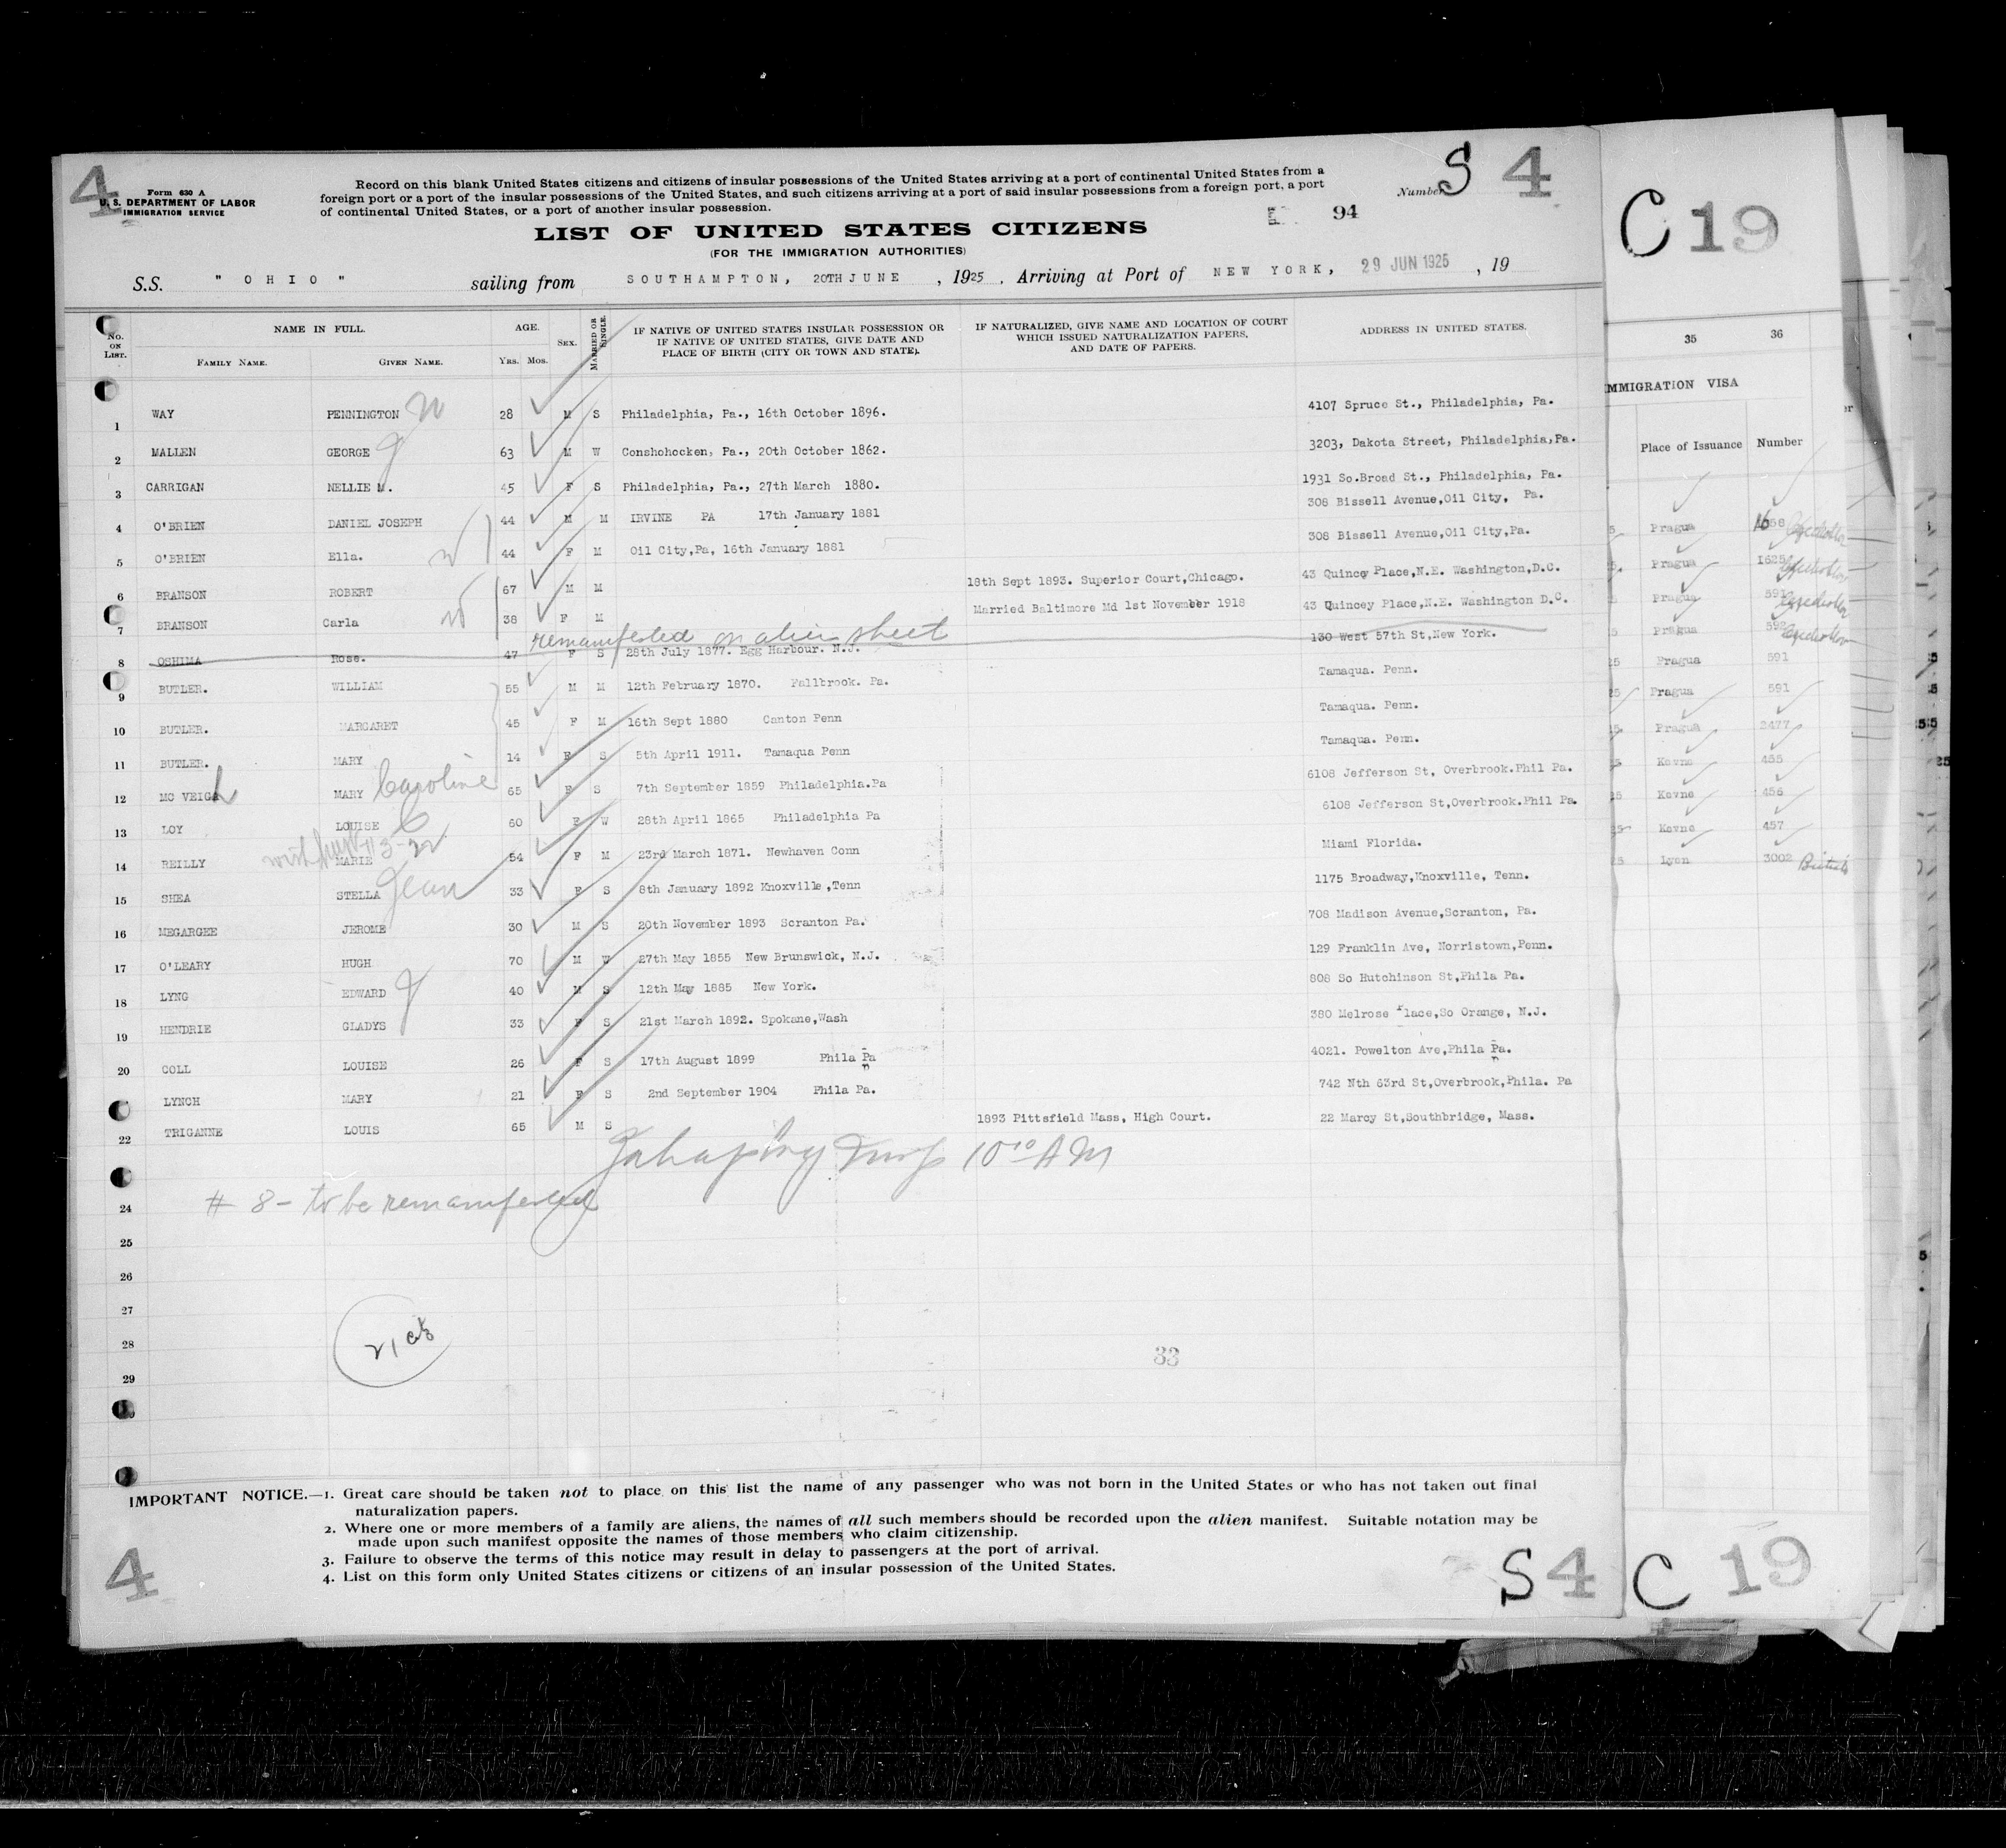 4
Form 630 A
U. S. DEPARTMENT OF LABOR
IMMIGRATION SERVICE
Record on this blank United States citizens and citizens of insular possessions of the United States arriving at a port of continental United States from a
foreign port or a port of the insular possessions of the United States, and such citizens arriving at a port of said insular possessions from a foreign port, a port
of continental United States, or a port of another insular possession.
Number S 4
94
LIST OF UNITED STATES CITIZENS
(FOR THE IMMIGRATION AUTHORITIES)
S.S. " OHIO " sailing from SOUTHAMPTON, 20TH JUNE , 1925 . Arriving at Port of NEW YORK, 29 JUN 1925 , 19
No. ON LIST. NAME IN FULL. AGE. SEX. MARRIED OR SINGLE. IF NATIVE OF UNITED STATES INSULAR POSSESSION OR IF NATIVE OF UNITED STATES, GIVE DATE AND PLACE OF BIRTH (CITY OR TOWN AND STATE). IF NATURALIZED, GIVE NAME AND LOCATION OF COURT WHICH ISSUED NATURALIZATION PAPERS, AND DATE OF PAPERS. ADDRESS IN UNITED STATES.
FAMILY NAME. GIVEN NAME. YRS. MOS.
1 WAY PENNINGTON W 28 M S Philadelphia, Pa., 16th October 1896. 4107 Spruce St., Philadelphia, Pa.
2 MALLEN GEORGE J 63 M W Conshohocken, Pa., 20th October 1862. 3203, Dakota Street, Philadelphia,Pa.
3 CARRIGAN NELLIE M. 45 F S Philadelphia, Pa., 27th March 1880. 1931 So.Broad St., Philadelphia, Pa.
4 O'BRIEN DANIEL JOSEPH 44 M M IRVINE PA 17th January 1881 308 Bissell Avenue,Oil City, Pa.
5 O'BRIEN Ella. W 44 F M Oil City,Pa, 16th January 1881 308 Bissell Avenue,Oil City,Pa.
6 BRANSON ROBERT 67 M M 18th Sept 1893. Superior Court,Chicago. 43 Quincy Place,N.E. Washington,D.C.
7 BRANSON Carla W 38 F M Married Baltimore Md 1st November 1918 43 Quincey Place,N.E. Washington D.C.
remanifested on alien sheet
8 OSHIMA Rose. 47 F S 28th July 1877. Egg Harbour. N.J. 130 West 57th St,New York.
9 BUTLER. WILLIAM 55 M M 12th February 1870. Fallbrook. Pa. Tamaqua. Penn.
10 BUTLER. MARGARET 45 F M 16th Sept 1880 Canton Penn Tamaqua. Penn.
11 BUTLER. MARY 14 F S 5th April 1911. Tamaqua Penn Tamaqua. Penn.
12 MC VEIGH MARY Caroline 65 F S 7th September 1859 Philadelphia.Pa 6108 Jefferson St, Overbrook.Phil Pa.
13 LOY LOUISE C 60 F W 28th April 1865 Philadelphia Pa 6108 Jefferson St,Overbrook.Phil Pa.
14 REILLY MARIE 54 F M 23rd March 1871. Newhaven Conn Miami Florida.
15 SHEA STELLA Jean 33 F S 8th January 1892 Knoxville,Tenn 1175 Broadway,Knoxville, Tenn.
16 MEGARGEE JEROME 30 M S 20th November 1893 Scranton Pa. 708 Madison Avenue,Scranton, Pa.
17 O'LEARY HUGH 70 M W 27th May 1855 New Brunswick, N.J. 129 Franklin Ave, Norristown,Penn.
18 LYNG EDWARD J 40 M S 12th May 1885 New York. 808 So Hutchinson St,Phila Pa.
19 HENDRIE GLADYS 33 F S 21st March 1892. Spokane,Wash 380 Melrose Place,So Orange, N.J.
20 COLL LOUISE 26 F S 17th August 1899 Phila Pa 4021. Powelton Ave,Phila Pa.
LYNCH MARY 21 F S 2nd September 1904 Phila Pa. 742 Nth 63rd St,Overbrook,Phila. Pa
22 TRIGANNE LOUIS 65 M S 1893 Pittsfield Mass, High Court. 22 Marcy St,Southbridge, Mass.
Insp 10 10 AM
24 # 8 - to be remanifested
25
26
27
28
21 cit
29
33
IMPORTANT NOTICE.—1. Great care should be taken not to place on this list the name of any passenger who was not born in the United States or who has not taken out final
naturalization papers.
2. Where one or more members of a family are aliens, the names of all such members should be recorded upon the alien manifest. Suitable notation may be
made upon such manifest opposite the names of those members who claim citizenship.
3. Failure to observe the terms of this notice may result in delay to passengers at the port of arrival.
4. List on this form only United States citizens or citizens of an insular possession of the United States.
4
S 4
C 19
35 36
IMMIGRATION VISA
Place of Issuance Number
Pragua 1658
Pragua 1625
Pragua 591
Pragua 592
Pragua 591
Pragua 591
Pragua 2477
Kovno 455
Kovno 456
Kovno 457
Lyon 3002
C 19